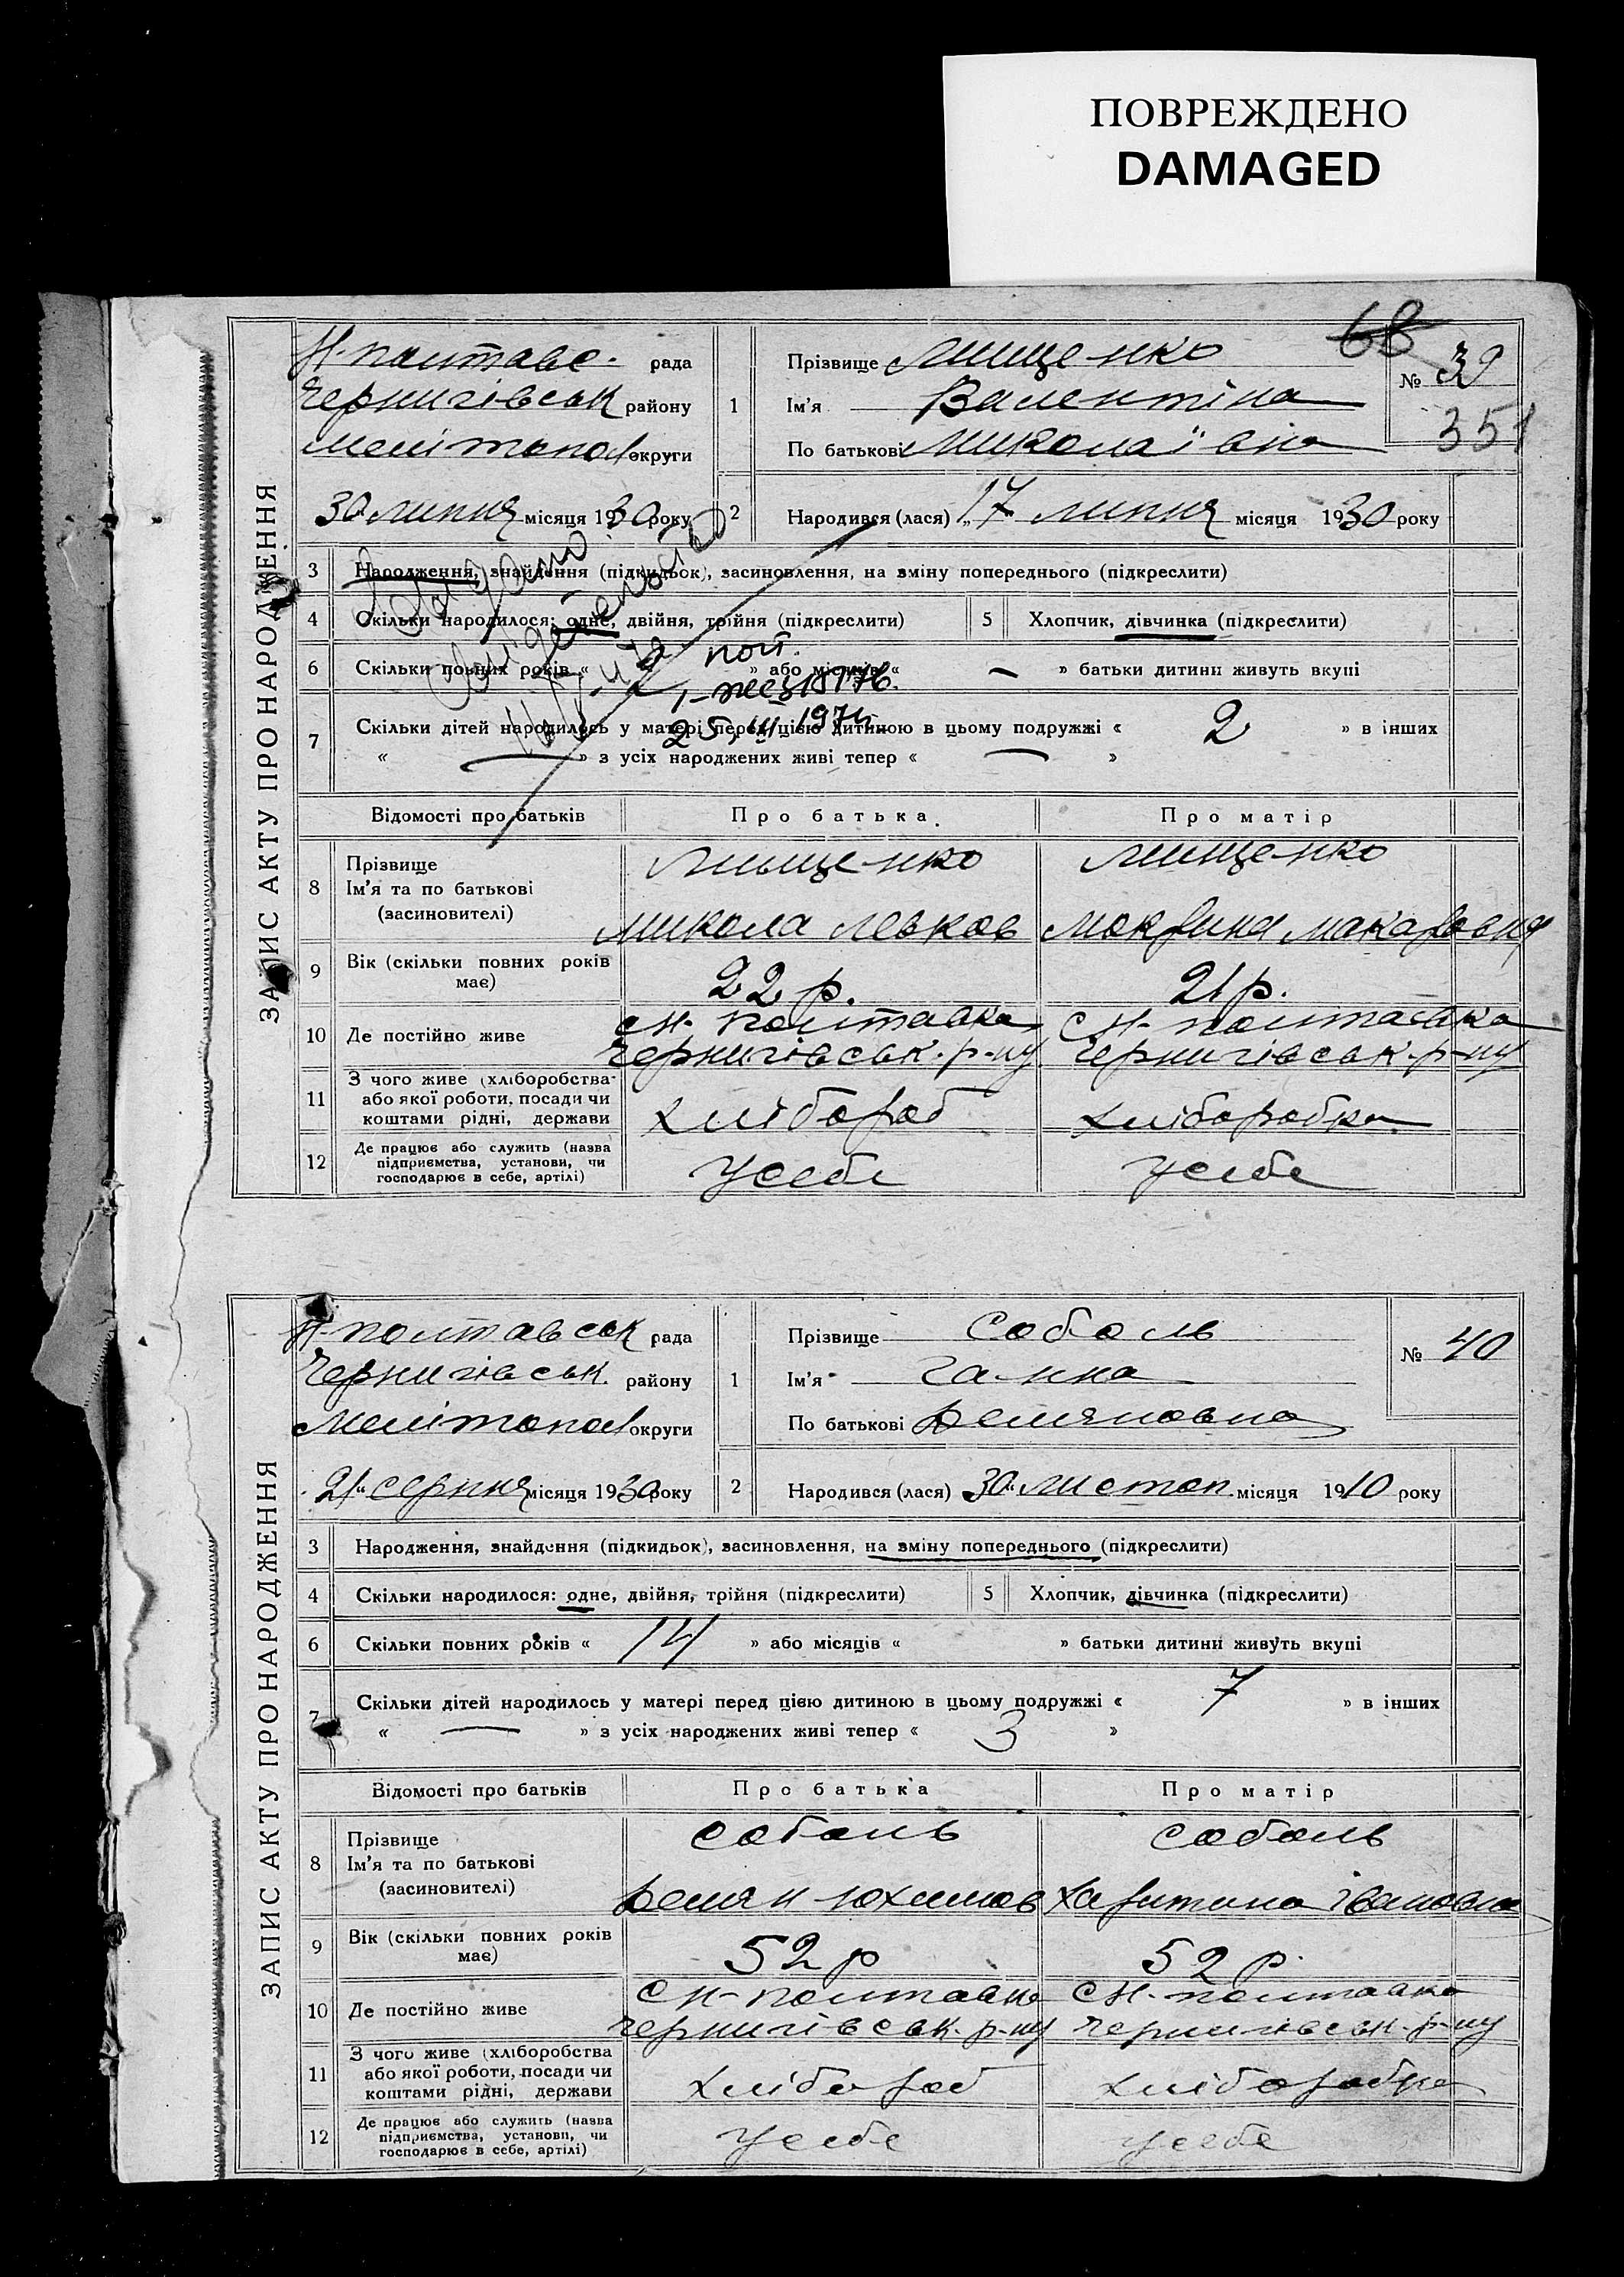 ПОВРЕЖДЕНО
DAMAGED
68
ЗАПИС АКТУ ПРО НАРОДЖЕННЯ
Н-полтавс. рада
Чернигівськ району
Мелітопол округи
30 липня місяця 1930 року
1 Прізвище Мищенко
Ім'я Валентіна
По батькові Миколаівна
№ 39
351
2 Народився (лася) „17 липня місяця 1930 року
3 Народження, знайдення (підкидьок), засиновлення, на зміну попереднього (підкреслити)
4 Скільки народилося: одне, двійня, трійня (підкреслити) 5 Хлопчик, дівчинка (підкреслити)
6 Скільки повних років « 2 » або місяців « — » батьки дитини живуть вкупі
пол.
25
7 Скільки дітей народилось у матері перед цією дитиною в цьому подружжі « 2 » в інших
« — » з усіх народжених живі тепер « — »
Відомості про батьків Про батька Про матір
8 Прізвище Мищенко Мищенко
Ім'я та по батькові
(засиновителі) Микола Левков Мокрина Макаровна
9 Вік (скільки повних років має) 22 р. 21 р.
10 Де постійно живе с Н- Полтавка с Н- Полтавка
Чернигівськ. р-ну Чернигівськ. р-ну
11 З чого живе (хліборобства
або якої роботи, посади чи
коштами рідні, держави Хлібороб Хліборобка
12 Де працює або служить (назва
підприємства, установи, чи
господарює в себе, артілі) Усебе Усебе
ЗАПИС АКТУ ПРО НАРОДЖЕННЯ
Н-полтавськ рада
Чернигівськ. району
Мелітопол округи
21 серпня місяця 1930 року
1 Прізвище Соболь
Ім'я Ганна
По батькові Демяновна
№ 40
2 Народився (лася) 30 листоп. місяця 1910 року
3 Народження, знайдення (підкидьок), засиновлення, на зміну попереднього (підкреслити)
4 Скільки народилося: одне, двійня, трійня (підкреслити) 5 Хлопчик, дівчинка (підкреслити)
6 Скільки повних років « 14 » або місяців « » батьки дитини живуть вкупі
7 Скільки дітей народилось у матері перед цією дитиною в цьому подружжі « 7 » в інших
« — » з усіх народжених живі тепер « 3 »
Відомості про батьків Про батька Про матір
8 Прізвище Соболь Соболь
Ім'я та по батькові
(засиновителі) Демян Юхимов Харитина Івановна
9 Вік (скільки повних років має) 52 р 52 р.
10 Де постійно живе с Н- Полтавка с Н. Полтавка
Чернигівськ. р-ну Чернигівськ. р-ну
11 З чого живе (хліборобства
або якої роботи, посади чи
коштами рідні, держави Хлібороб Хліборобка
12 Де працює або служить (назва
підприємства, установи, чи
господарює в себе, артілі) Усебе Усебе